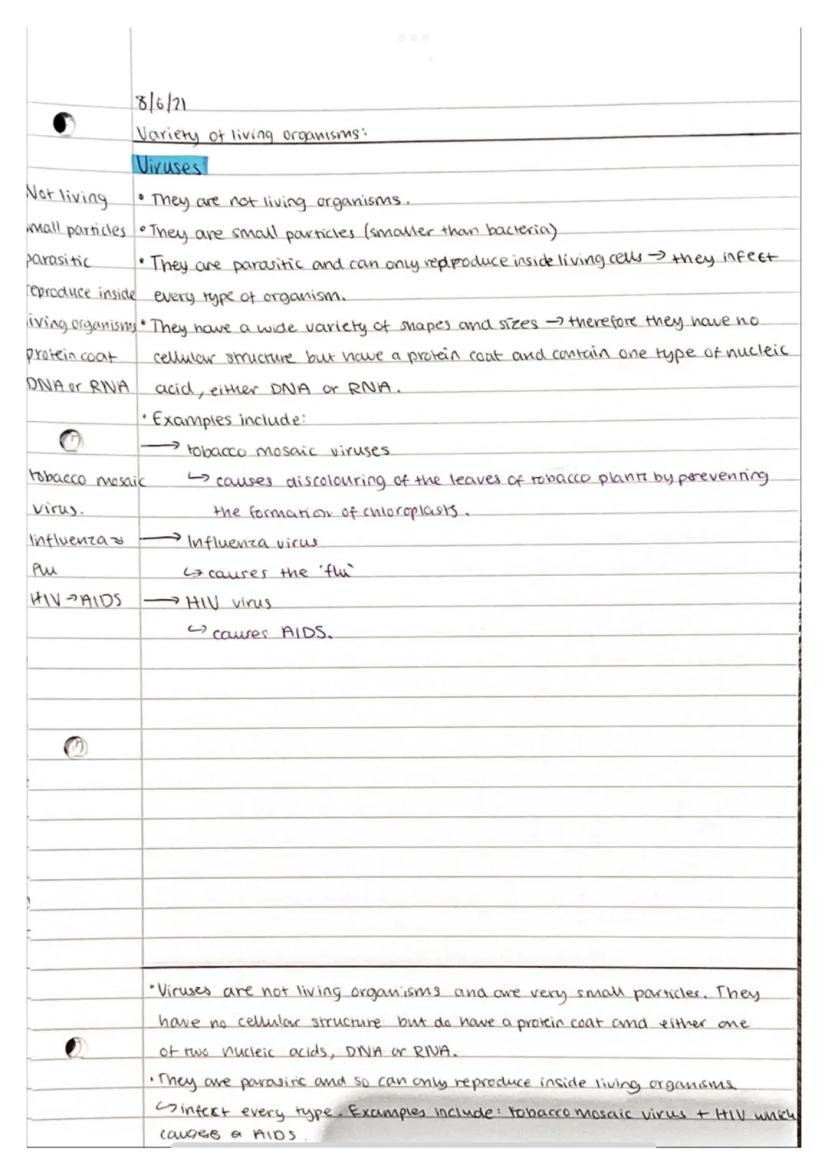 8/6/21
Variety of living organisms:
Viruses
Not living
mall particles
parasitic
reproduce inside
iving organisms
protein coat
DNA or RNA
• They are not living organisms.
• They are small particles (smaller than bacteria)
• They are parasitic and can only reproduce inside living cells → they infect
every type of organism.
• They have a wide variety of shapes and sizes → therefore they have no
cellular structure but have a protein coat and contain one type of nucleic
acid, either DNA or RNA.
• Examples include:
→ tobacco mosaic viruses
↳ causes discolouring of the leaves of tobacco plants by preventing
the formation of chloroplasts.
tobacco mosaic
virus.
Influenza →
flu
HIV → AIDS
→ Influenza virus
↳ causes the 'flu'
→ HIV virus
↳ causes AIDS.
• Viruses are not living organisms and are very small particles. They
have no cellular structure but do have a protein coat and either one
of two nucleic acids, DNA or RNA.
• They are parasitic and so can only reproduce inside living organisms
↳ infect every type. Examples include: tobacco mosaic virus + HIV which
causes AIDS.